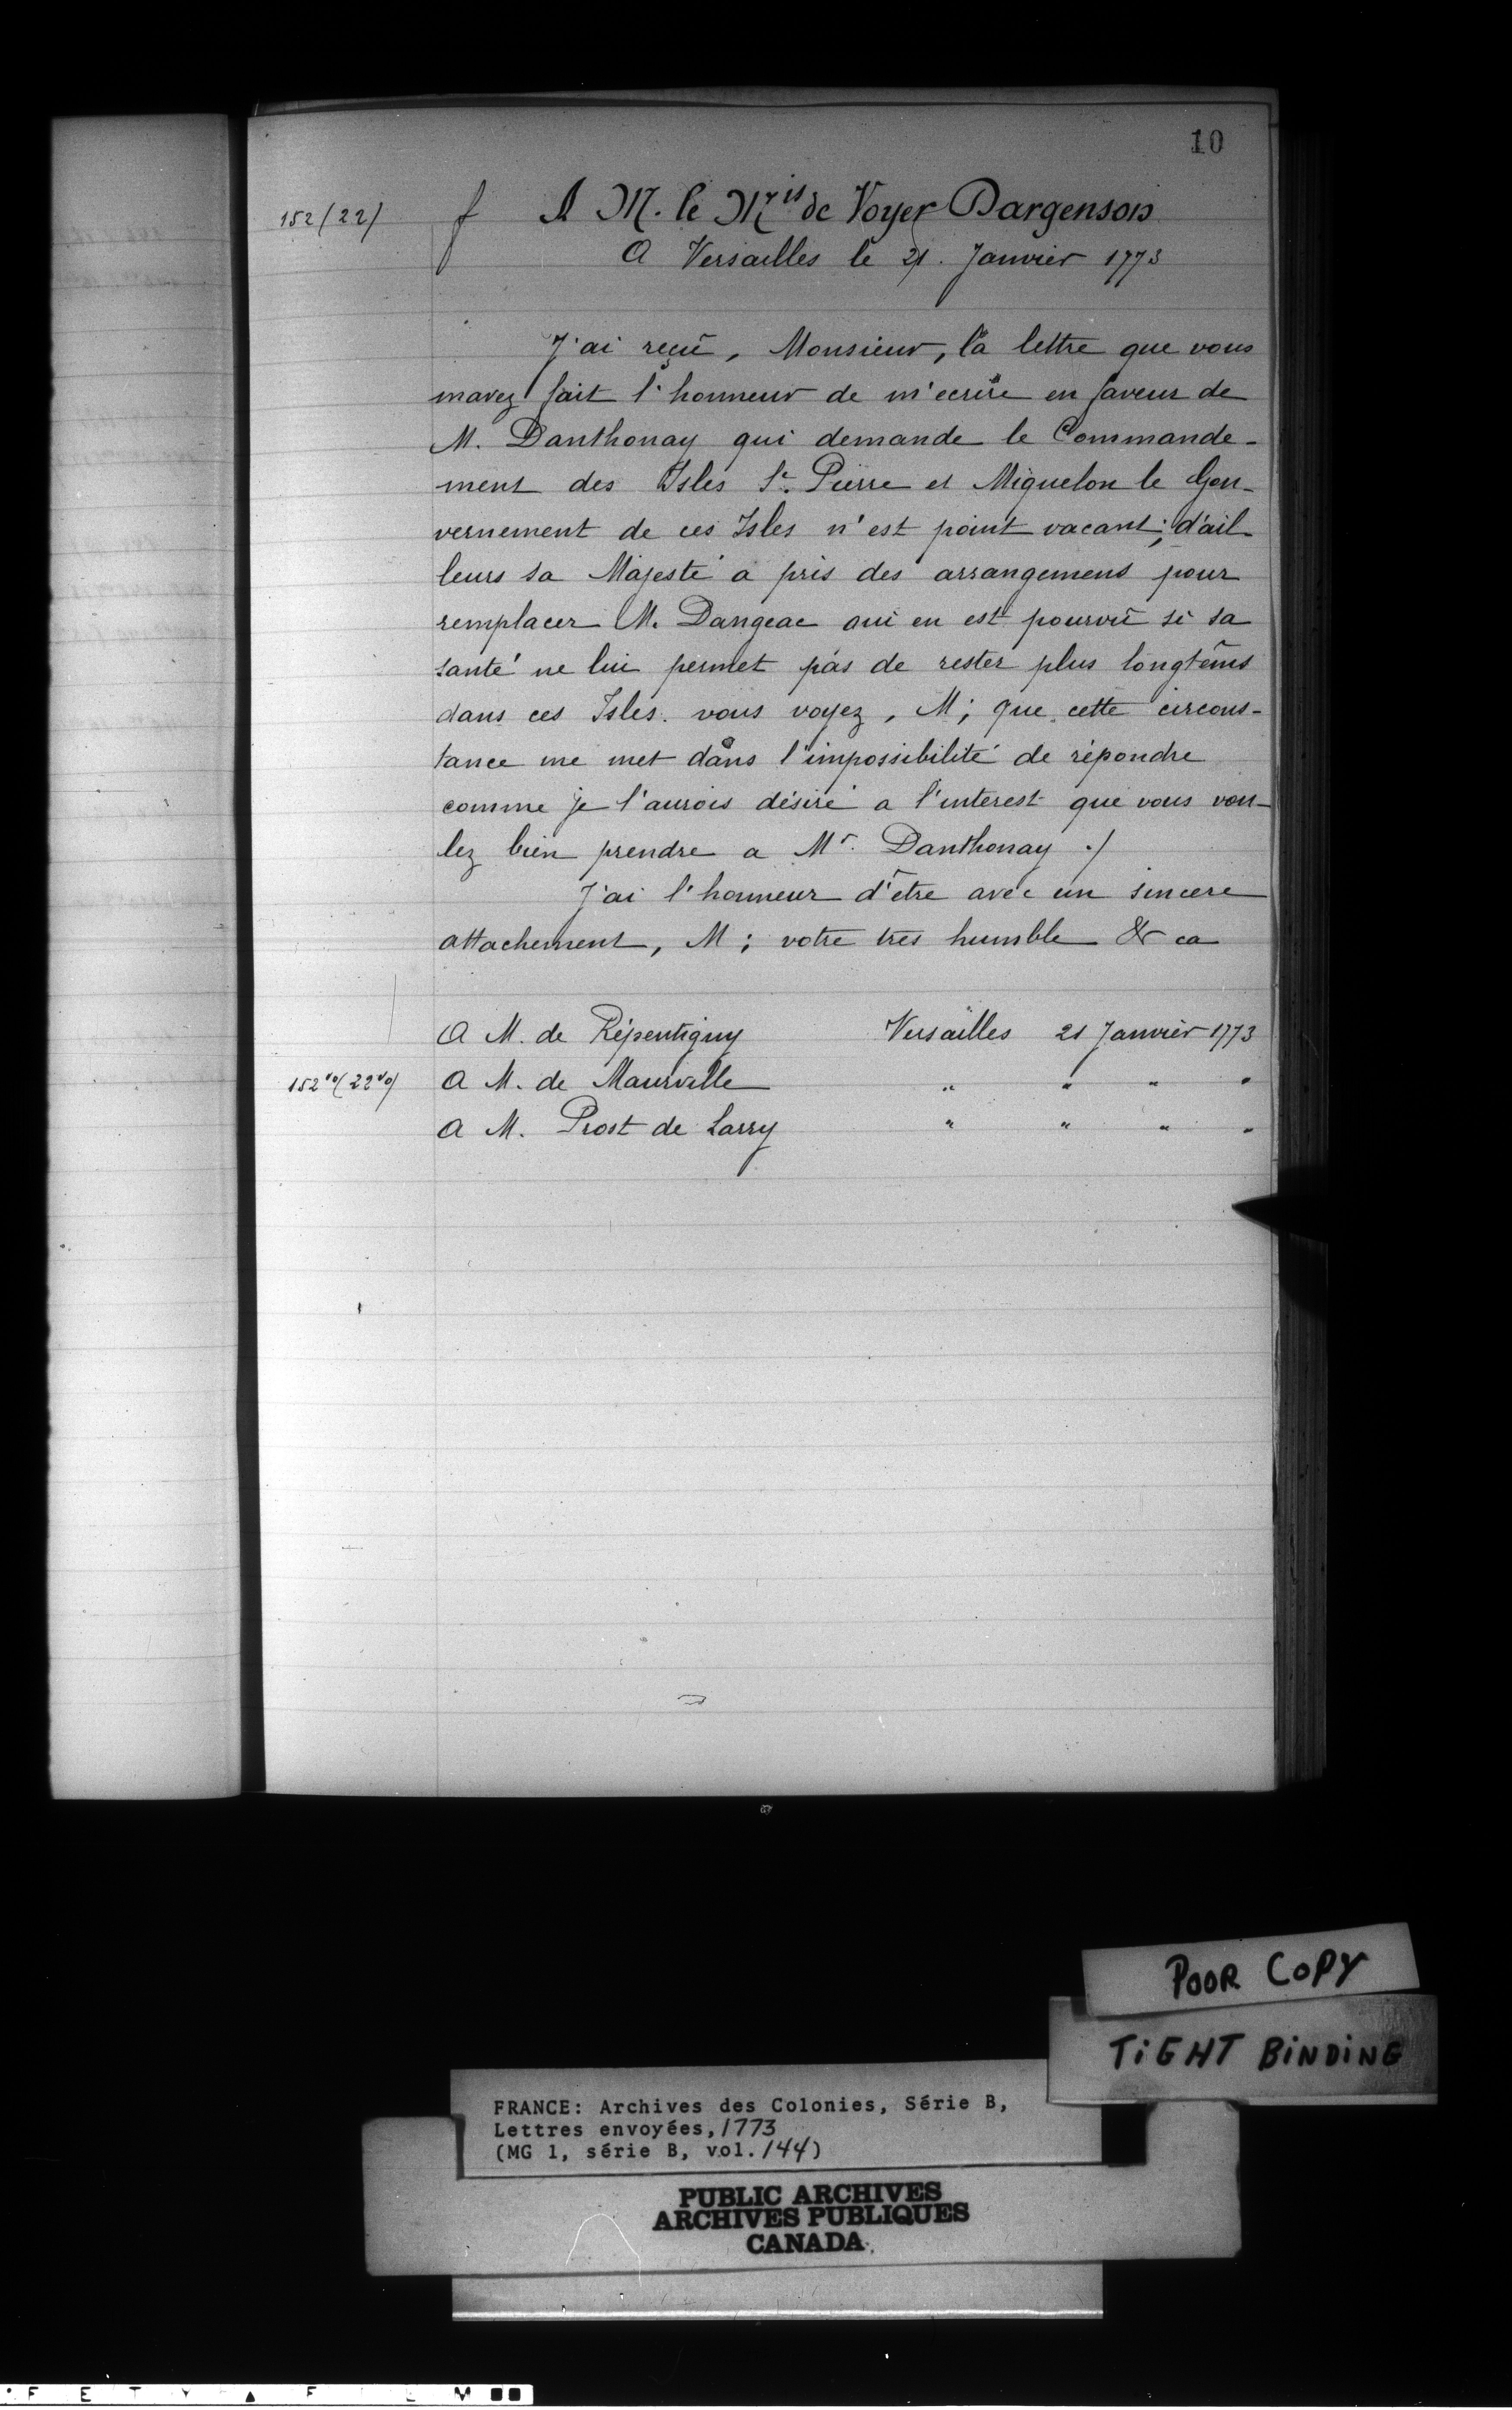 10
152 (22) f A M. le Mis de Voyer Dargenson
A Versailles le 21. Janvier 1773
J'ai reçû, Monsieur, la lettre que vous
mavez fait l'honneur de m'ecrire en faveur de
M. Danthonay qui demande le Commande-
ment des Isles St. Pierre et Miquelon le Gou-
vernement de ces Isles n'est point vacant; d'ail-
leurs sa Majesté a pris des arrangemens pour
remplacer M. Dangeac qui en est pourvû si sa
santé ne lui permet pas de rester plus longtêms
dans ces Isles. vous voyez, M; que cette circons-
tance me met dans l'impossibilité de répondre
comme je l'aurois désiré a l'interest que vous vou-
lez bien prendre a Mr. Danthonay ./
J'ai l'honneur d'être avec un sincere
attachement, M; votre très humble & ca
A M. de Répentigny Versailles 21 Janvier 1773
152vo (22vo) A M. de Maurville " " " "
A M. Prost de Larry " " " "
POOR COPY
TiGHT BiNDiNG
FRANCE: Archives des Colonies, Série B,
Lettres envoyées, 1773
(MG 1, série B, vol. 144)
PUBLIC ARCHIVES
ARCHIVES PUBLIQUES
CANADA